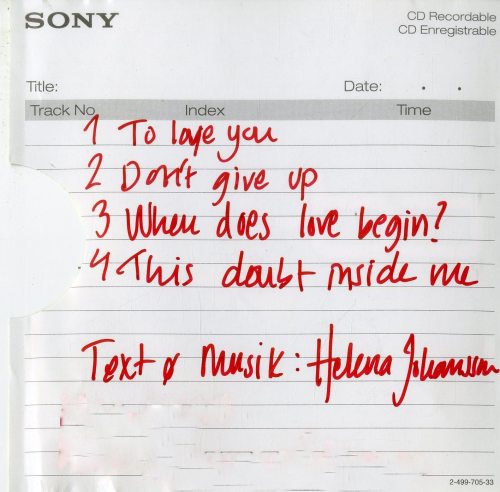 SONY
CD Recordable
CD Enregistrable
Title:
Date: . .
Track No Index Time
1 To love you
2 Don't give up
3 When does love begin?
4 This doubt inside me
Text & Musik: Helena Johansson
2-499-705-33